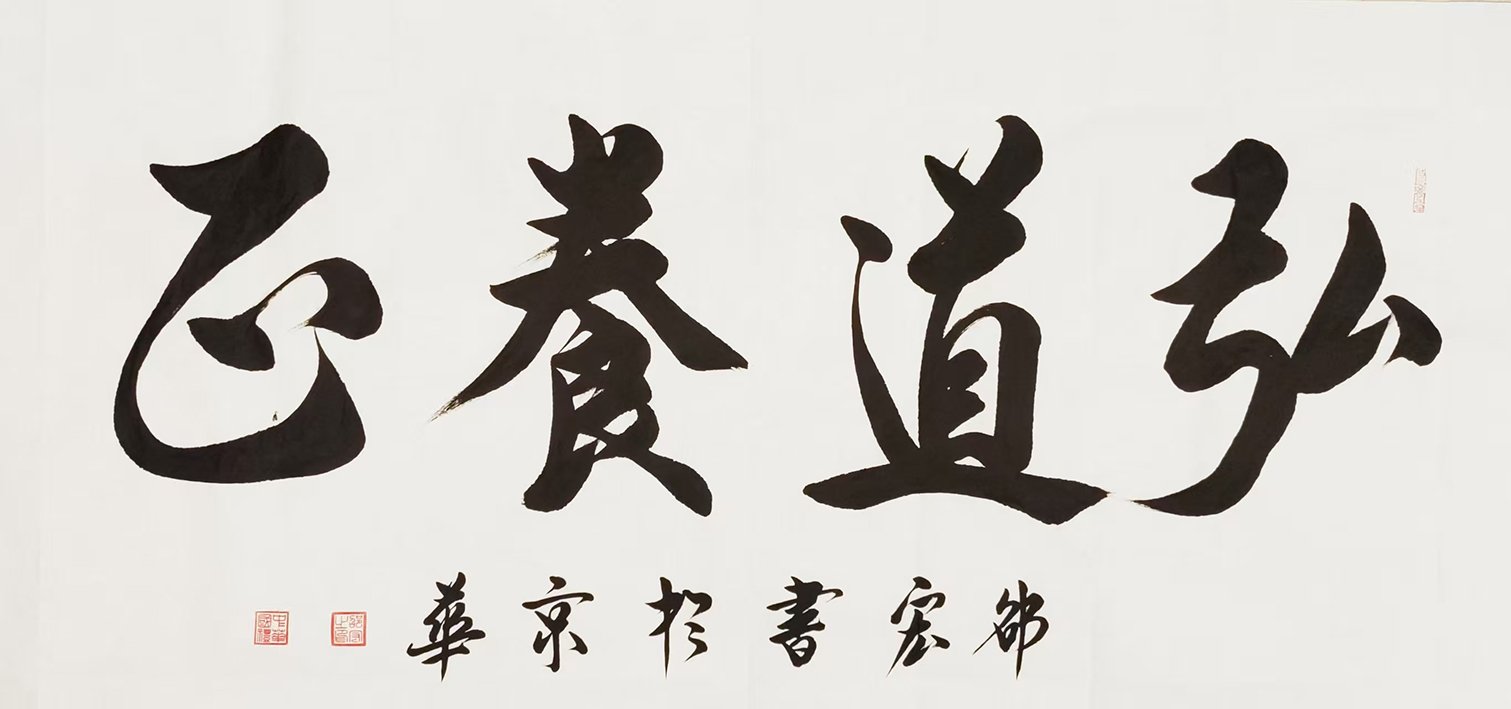 弘道養正
邵宏書於京華